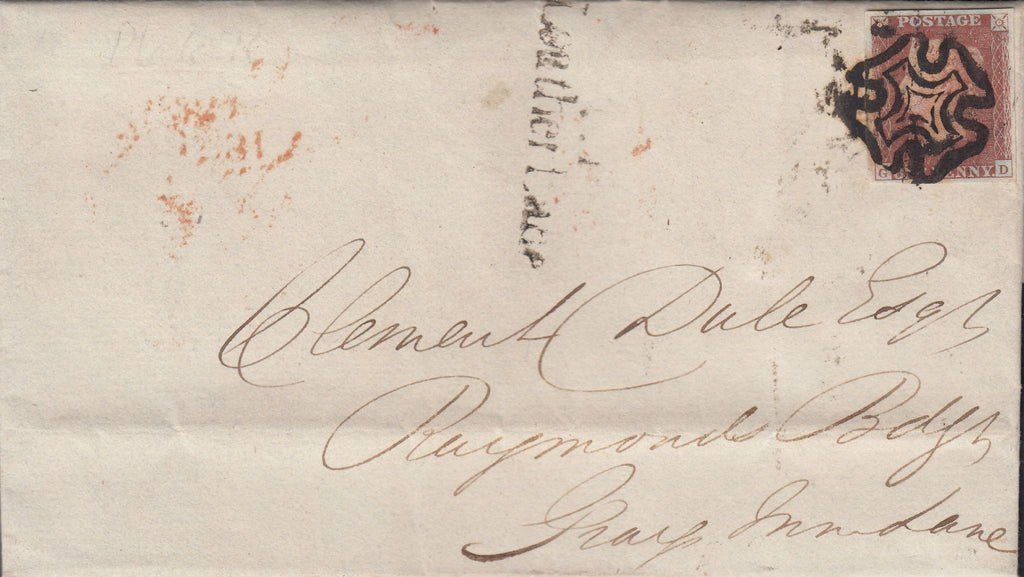 POSTAGE
G D
Clement Dale Esqr
Raymonds Bdgs
Grays Inn Lane